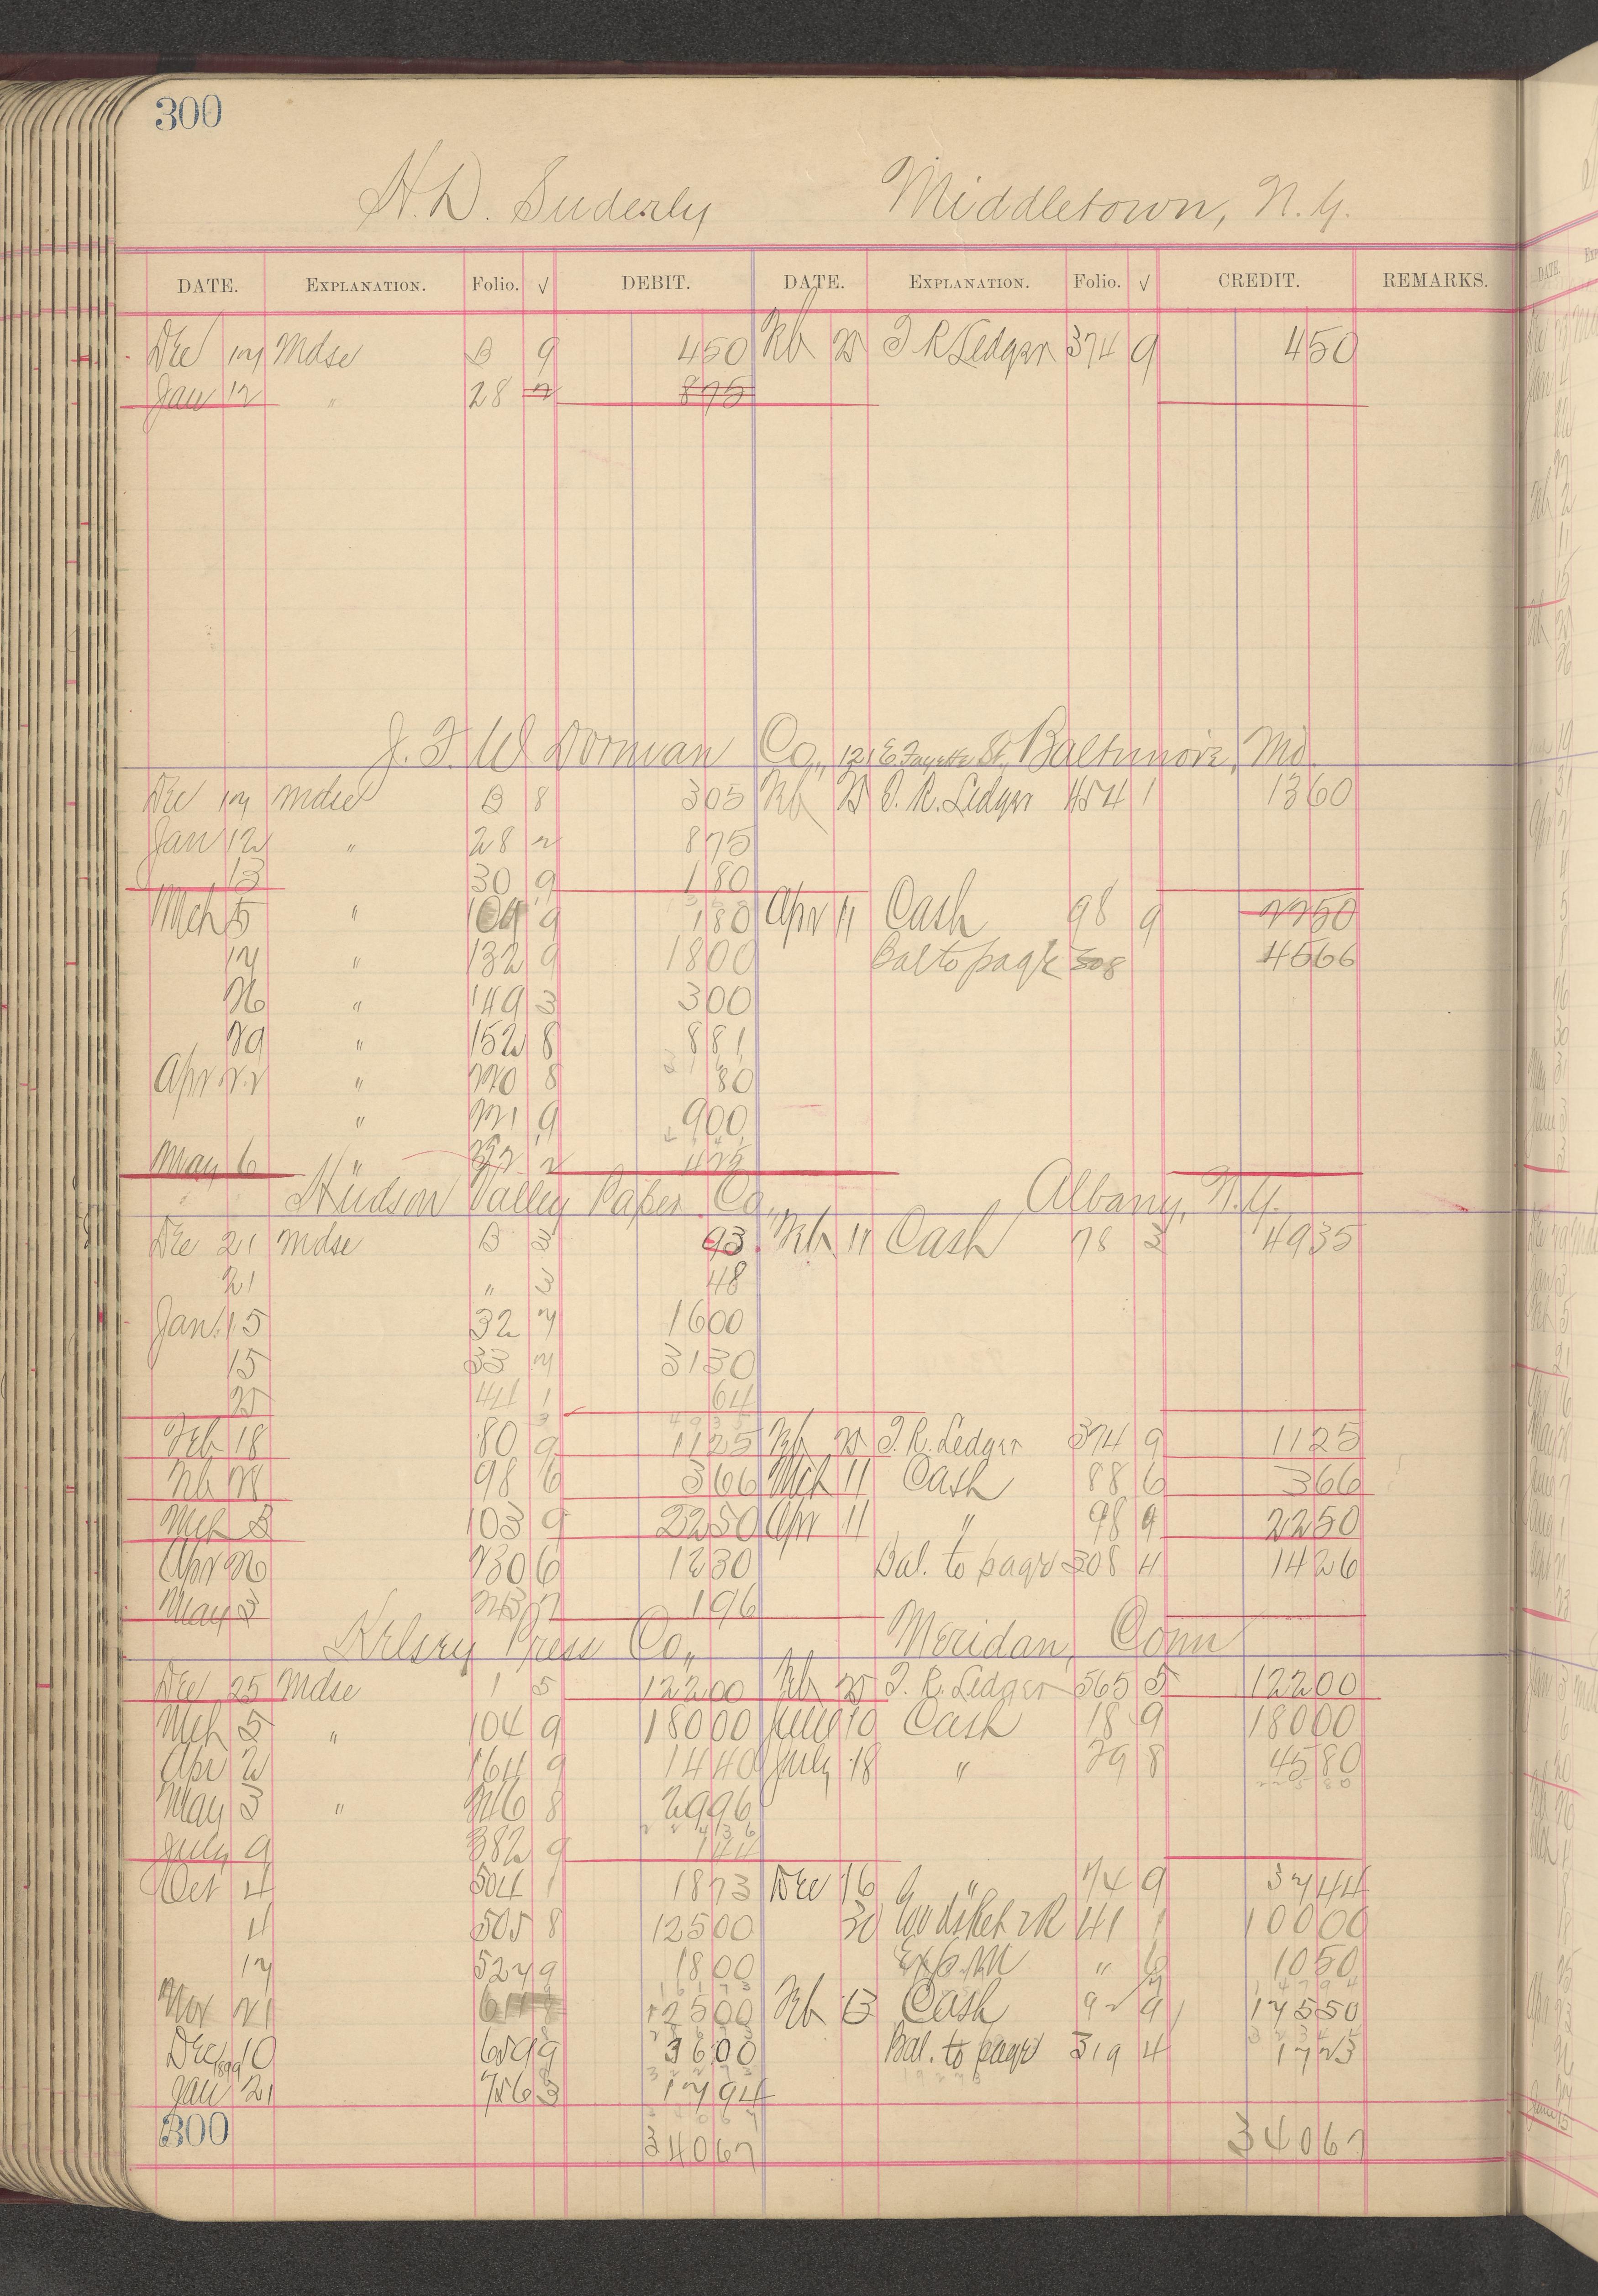 300
H. D. Suderly Middletown, N.Y.
DATE. EXPLANATION. Folio. √ DEBIT. DATE. EXPLANATION. Folio. √ CREDIT. REMARKS.
Dec 17 Mdse B 9 450 Feb 28 T R Ledger 374 9 450
Jan 12 " 28 2 875
J. F. W Dorman Co., 121 E. Fayette St., Baltimore, Md.
Dec 17 Mdse B 8 305 Feb 28 T. R. Ledger 454 1 1360
Jan 12 " 28 2 875
13 30 9 180
Mch 5 " 104 9 180 Apr 11 Cash 98 9 2250
17 " 132 9 1800 Bal to page 308 4566
26 " 149 3 300
29 " 152 8 881
Apr 22 " 220 8 80
" 221 9 900
May 6 " 2 425
Hudson Valley Paper Co., Albany, N.Y.
Dec 21 Mdse B 3 93 Feb 11 Cash 78 3 4935
21 " 3 48
Jan. 15 32 7 1600
15 33 7 3130
25 44 1 64
4935
Feb 18 80 9 1125 Feb 28 T. R. Ledger 374 9 1125
Feb 28 98 6 366 Mch 11 Cash 88 6 366
Mch 5 103 9 2250 Apr 11 " 98 9 2250
Apr 26 230 6 1230 Bal. to page 308 4 1426
May 3 245 2 196
Kelsey Press Co., Meridan, Conn
Dec 25 Mdse 1 5 12200 Feb 28 T. R. Ledger 365 5 12200
Mch 5 " 104 9 18000 June 10 Cash 18 9 18000
Apr 2 164 9 1440 July 18 " 29 8 4580
May 3 " 246 8 2996
July 9 382 9 144
Oct 4 504 1 1873 Dec 16 " 74 9 3744
4 505 8 12500 30 41 1 10000
17 527 9 1800 " 6 1050
Nov 21 12500 Feb 13 Cash 92 9 17550
Dec 10 659 9 3600 Bal. to page 319 4 1723
1899
Jan 21 756 3 1794
300
34067 34067